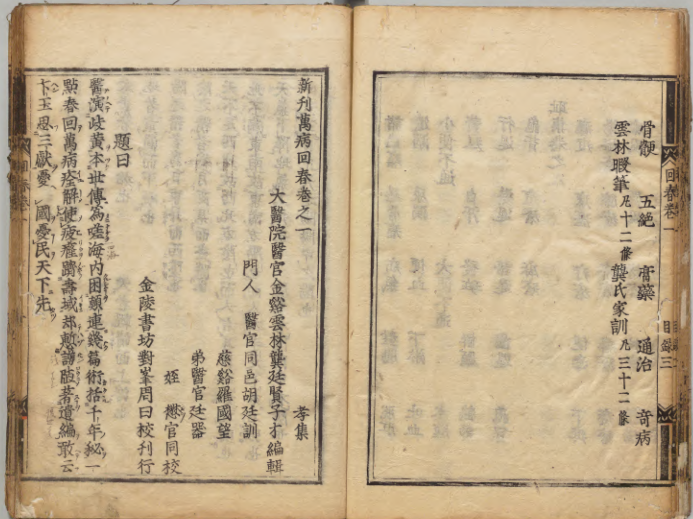 骨骾 五絶 膏藥 通治 奇病
雲林暇筆凡十二條龔氏家訓凡三十二條
回春卷一
目錄三
新刊萬病回春卷之一 孝集
大醫院醫官金谿雲林龔廷賢子才編輯
門人 醫官同邑胡廷訓
慈谿羅國望
弟醫官廷器
姪 懋官同校
金陵書坊對峯周曰校刊行
題曰
醫演岐黃本世傳為
海内困顛連幾篇術括千年秘一
點春回萬病
解使疲癃躋壽域
卞玉思三獻憂 國憂民天下先
回春卷一